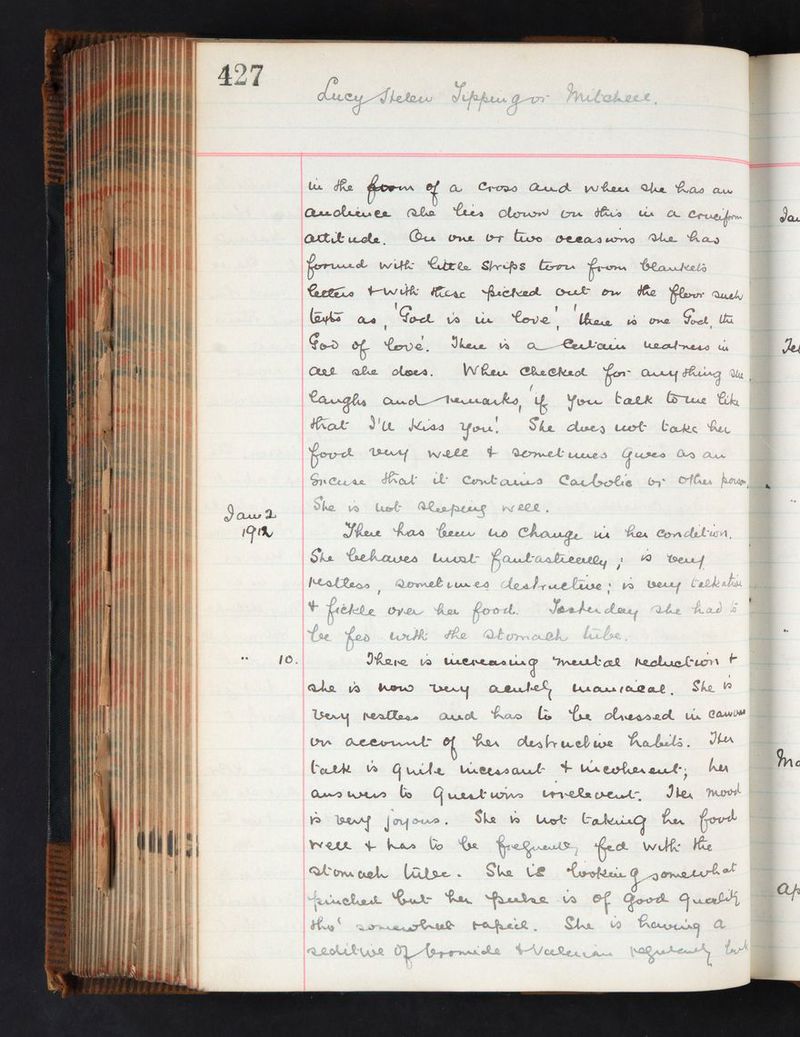 427
Lucy Helen Tipping or Mitchell.
in the form of a cross and when she has an
audience she lies down on this in a cruciform
attitude. On one or two occasions she has
formed with little strips torn from blankets
letters & with these picked out on the floor such
texts as, 'God is in love', 'there is one God, the
God of love'. There is a certain neatness in
all she does. When checked for anything she
laughs and remarks, 'if you talk to me like
that I'll kiss you'. She does not take her
food very well & sometimes gives as an
excuse that it contains Carbolic or other poison.
She is not sleeping well.
Jan 2
1912
There has been no change in her condition.
She behaves most fantastically; is very
restless, sometimes destructive; is very talkative
& fickle over her food. Yesterday she had to
be fed with the stomach tube.
" 10.
There is increasing mental reduction &
she is now very acutely maniacal. She is
very restless and has to be dressed in canvas
on account of her destructive habits. Her
talk is quite incessant & incoherent; her
answers to questions irrelevent. Her mood
is very joyous. She is not taking her food
well & has to be frequently fed with the
stomach tube. She is looking somewhat
pinched but her pulse is of good quality
tho' somewhat rapid. She is having a
seditive of bromide & Valerian regularly but